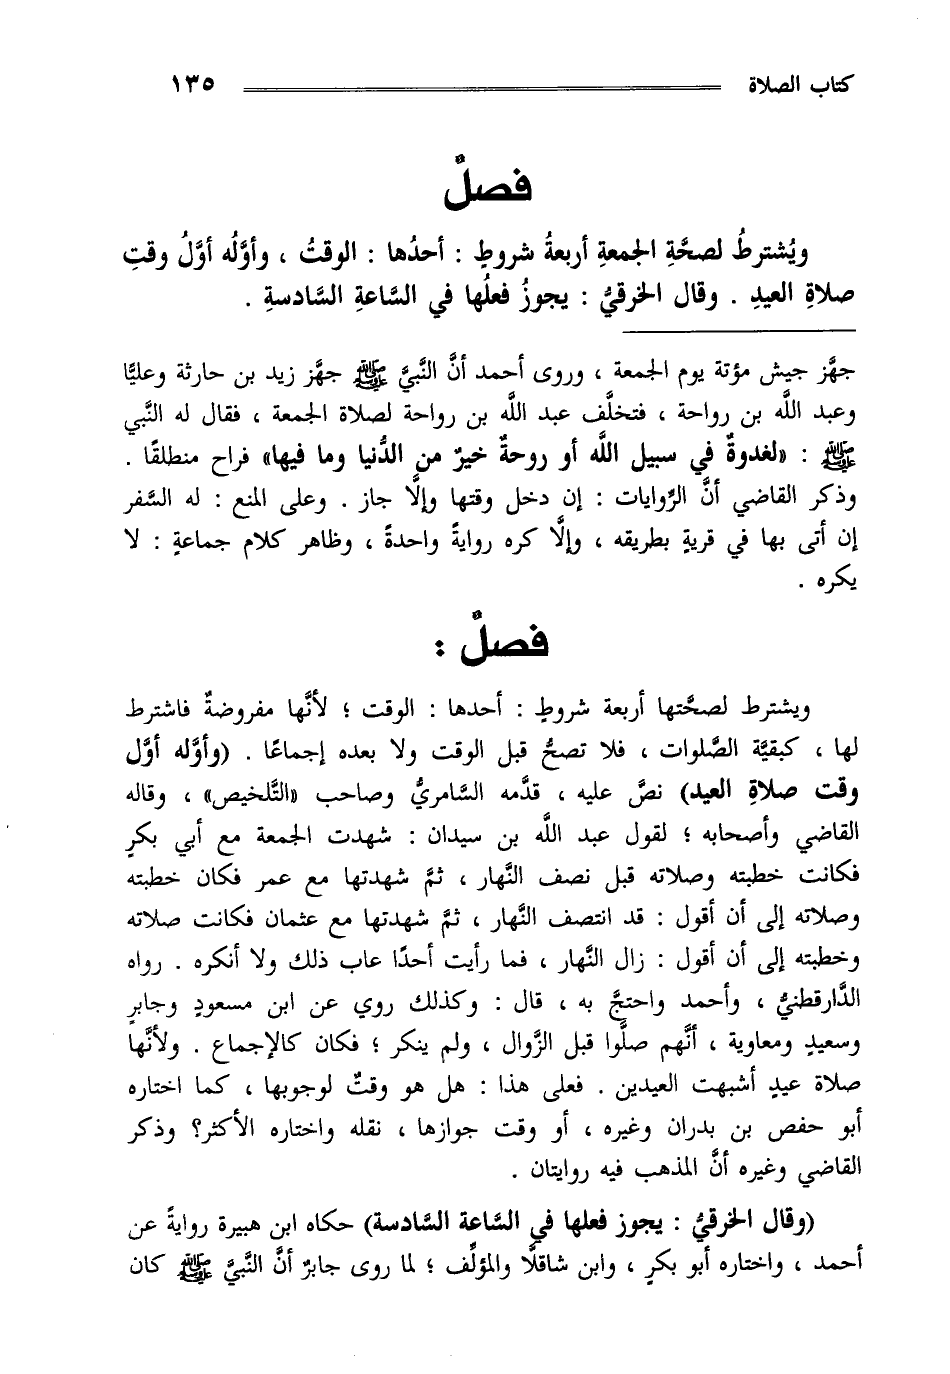 كتاب الصلاة ١٣٥
فصلٌ
ويُشترطُ لصحَّةِ الجمعةِ أربعةُ شروطٍ : أحدُها : الوقتُ ، وأوَّلُه أوَّلُ وقتِ
صلاةِ العيدِ . وقال الخرقيُّ : يجوزُ فعلُها في السَّاعةِ السَّادسةِ .
جهَّز جيش مؤتة يوم الجمعة ، وروى أحمد أنَّ النَّبيَّ ﷺ جهَّز زيد بن حارثة وعليًّا
وعبد اللَّه بن رواحة ، فتخلَّف عبد اللَّه بن رواحة لصلاة الجمعة ، فقال له النَّبي
ﷺ : «لغدوةٌ في سبيل اللَّه أو روحةٌ خيرٌ من الدُّنيا وما فيها» فراح منطلقًا .
وذكر القاضي أنَّ الرِّوايات : إن دخل وقتها وإلَّا جاز . وعلى المنع : له السَّفر
إن أتى بها في قريةٍ بطريقه ، وإلَّا كره روايةً واحدةً ، وظاهر كلام جماعةٍ : لا
يكره .
فصلٌ :
ويشترط لصحَّتها أربعة شروطٍ : أحدها : الوقت ؛ لأنَّها مفروضةٌ فاشترط
لها ، كبقيَّة الصَّلوات ، فلا تصحُّ قبل الوقت ولا بعده إجماعًا . (وأوَّله أوَّل
وقت صلاةِ العيد) نصَّ عليه ، قدَّمه السَّامريُّ وصاحب «التَّلخيص» ، وقاله
القاضي وأصحابه ؛ لقول عبد اللَّه بن سيدان : شهدت الجمعة مع أبي بكرٍ
فكانت خطبته وصلاته قبل نصف النَّهار ، ثمَّ شهدتها مع عمر فكان خطبته
وصلاته إلى أن أقول : قد انتصف النَّهار ، ثمَّ شهدتها مع عثمان فكانت صلاته
وخطبته إلى أن أقول : زال النَّهار ، فما رأيت أحدًا عاب ذلك ولا أنكره . رواه
الدَّارقطنيُّ ، وأحمد واحتجَّ به ، قال : وكذلك روي عن ابن مسعودٍ وجابرٍ
وسعيدٍ ومعاوية ، أنَّهم صلَّوا قبل الزَّوال ، ولم ينكر ؛ فكان كالإجماع . ولأنَّها
صلاة عيدٍ أشبهت العيدين . فعلى هذا : هل هو وقتٌ لوجوبها ، كما اختاره
أبو حفص بن بدران وغيره ، أو وقت جوازها ، نقله واختاره الأكثر؟ وذكر
القاضي وغيره أنَّ المذهب فيه روايتان .
(وقال الخرقيُّ : يجوز فعلها في السَّاعة السَّادسة) حكاه ابن هبيرة روايةً عن
أحمد ، واختاره أبو بكرٍ ، وابن شاقلَّا والمؤلِّف ؛ لما روى جابرٌ أنَّ النَّبيَّ ﷺ كان